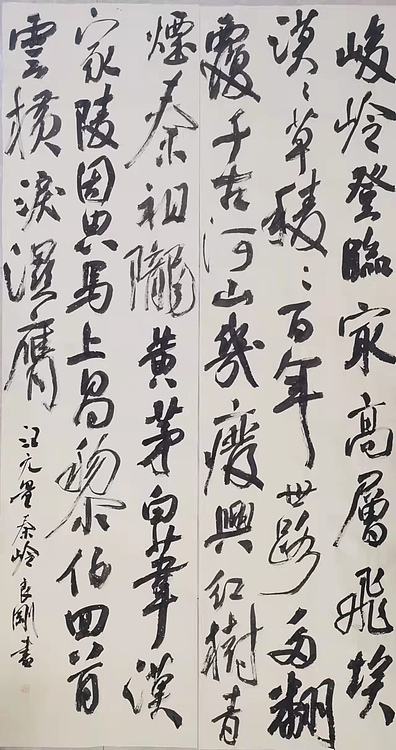 峻岭登臨冣高層飛埃
漠〻草稜〻百年世路多翻
覆千古河山幾廢興紅樹青
煙秦祖隴黃茅白葦漢
家陵因思馬上昌黎伯回首
雲橫淚濕膺
汪元量秦岭良剛書